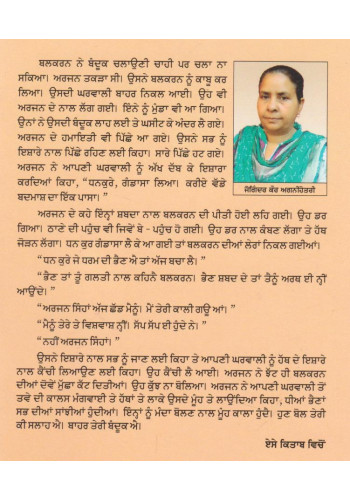 ਬਲਕਰਨ ਨੇ ਬੰਦੂਕ ਚਲਾਉਣੀ ਚਾਹੀ ਪਰ ਚਲਾ ਨਾ
ਸਕਿਆ। ਅਰਜਨ ਤਕੜਾ ਸੀ। ਉਸਨੇ ਬਲਕਰਨ ਨੂੰ ਕਾਬੂ ਕਰ
ਲਿਆ। ਉਸਦੀ ਘਰਵਾਲੀ ਬਾਹਰ ਨਿਕਲ ਆਈ। ਉਹ ਵੀ
ਅਰਜਨ ਦੇ ਨਾਲ ਲੱਗ ਗਈ। ਇੰਨੇ ਨੂੰ ਮੁੰਡਾ ਵੀ ਆ ਗਿਆ।
ਉਨਾਂ ਨੇ ਉਸਦੀ ਬੰਦੂਕ ਲਾਹ ਲਈ ਤੇ ਘਸੀਟ ਕੇ ਅੰਦਰ ਲੈ ਗਏ।
ਅਰਜਨ ਦੇ ਹਮਾਇਤੀ ਵੀ ਪਿੱਛੇ ਆ ਗਏ। ਉਸਨੇ ਸਭ ਨੂੰ
ਇਸ਼ਾਰੇ ਨਾਲ ਪਿੱਛੇ ਰਹਿਣ ਲਈ ਕਿਹਾ। ਸਾਰੇ ਪਿੱਛੇ ਹਟ ਗਏ।
ਅਰਜਨ ਨੇ ਆਪਣੀ ਘਰਵਾਲੀ ਨੂੰ ਅੱਖ ਦੱਬ ਕੇ ਇਸ਼ਾਰਾ
ਕਰਦਿਆਂ ਕਿਹਾ, "ਧਨਕੁਰੇ, ਗੰਡਾਸਾ ਲਿਆ। ਕਰੀਏ ਵੱਡੇ
ਬਦਮਾਸ਼ ਦਾ ਇੱਕ ਪਾਸਾ। "
ਜੋਗਿੰਦਰ ਕੌਰ ਅਗਨੀਹੋਤਰੀ
ਅਰਜਨ ਦੇ ਕਹੇ ਇੰਨ੍ਹਾਂ ਸ਼ਬਦਾਂ ਨਾਲ ਬਲਕਰਨ ਦੀ ਪੀਤੀ ਹੋਈ ਲਹਿ ਗਈ। ਉਹ ਡਰ
ਗਿਆ। ਠਾਣੇ ਦੀ ਪਹੁੰਚ ਵੀ ਜਿਵੇਂ ਬੇ - ਪਹੁੰਚ ਹੋ ਗਈ। ਉਹ ਡਰ ਨਾਲ ਕੰਬਣ ਲੱਗਾ ਤੇ ਹੱਥ
ਜੋੜਨ ਲੱਗਾ। ਧਨ ਕੁਰ ਗੰਡਾਸਾ ਲੈ ਕੇ ਆ ਗਈ ਤਾਂ ਬਲਕਰਨ ਦੀਆਂ ਲੇਰਾਂ ਨਿਕਲ ਗਈਆਂ।
"ਧਨ ਕੁਰੇ ਜੇ ਧਰਮ ਦੀ ਭੈਣ ਐਂ ਤਾਂ ਅੱਜ ਬਚਾ ਲੈ। "
"ਭੈਣ ਤਾਂ ਤੂੰ ਗਲਤੀ ਨਾਲ ਕਹਿਨੈਂ ਬਲਕਰਨ। ਭੈਣ ਸ਼ਬਦ ਦੇ ਤਾਂ ਤੈਨੂੰ ਅਰਥ ਈ ਨ੍ਹੀਂ
ਆਉਂਦੇ। "
"ਅਰਜਨ ਸਿੰਹਾਂ ਅੱਜ ਛੱਡ ਮੈਨੂੰ। ਮੈਂ ਤੇਰੀ ਕਾਲੀ ਗਊ ਆਂ। "
"ਮੈਨੂੰ ਤੇਰੇ ਤੇ ਵਿਸ਼ਵਾਸ਼ ਨ੍ਹੀਂ। ਸੱਪ ਸੱਪ ਈ ਹੁੰਦੇ ਨੇ। "
"ਨਹੀਂ ਅਰਜਨ ਸਿੰਹਾਂ। "
ਉਸਨੇ ਇਸ਼ਾਰੇ ਨਾਲ ਸਭ ਨੂੰ ਜਾਣ ਲਈ ਕਿਹਾ ਤੇ ਆਪਣੀ ਘਰਵਾਲੀ ਨੂੰ ਹੱਥ ਦੇ ਇਸ਼ਾਰੇ
ਨਾਲ ਕੈਂਚੀ ਲਿਆਉਣ ਲਈ ਕਿਹਾ। ਉਹ ਕੈਂਚੀ ਲੈ ਆਈ। ਅਰਜਨ ਨੇ ਝੱਟ ਹੀ ਬਲਕਰਨ
ਦੀਆਂ ਦੋਵੇਂ ਮੁੱਛਾਂ ਕੱਟ ਦਿਤੀਆਂ। ਉਹ ਕੁੱਝ ਨਾ ਬੋਲਿਆ। ਅਰਜਨ ਨੇ ਆਪਣੀ ਘਰਵਾਲੀ ਤੋਂ
ਤਵੇ ਦੀ ਕਾਲਸ ਮੰਗਵਾਈ ਤੇ ਹੱਥਾਂ ਤੇ ਲਾਕੇ ਉਸਦੇ ਮੂੰਹ ਤੇ ਲਾਉਂਦਿਆ ਕਿਹਾ, ਧੀਆਂ ਭੈਣਾਂ
ਸਭ ਦੀਆਂ ਸਾਂਝੀਆਂ ਹੁੰਦੀਆਂ। ਇੰਨ੍ਹਾਂ ਨੂੰ ਮੰਦਾ ਬੋਲਣ ਨਾਲ ਮੂੰਹ ਕਾਲਾ ਹੁੰਦੈ। ਹੁਣ ਬੋਲ ਤੇਰੀ
ਕੀ ਸਲਾਹ ਐ। ਬਾਹਰ ਤੇਰੀ ਬੰਦੂਕ ਐ।
ਏਸੇ ਕਿਤਾਬ ਵਿਚੋਂ